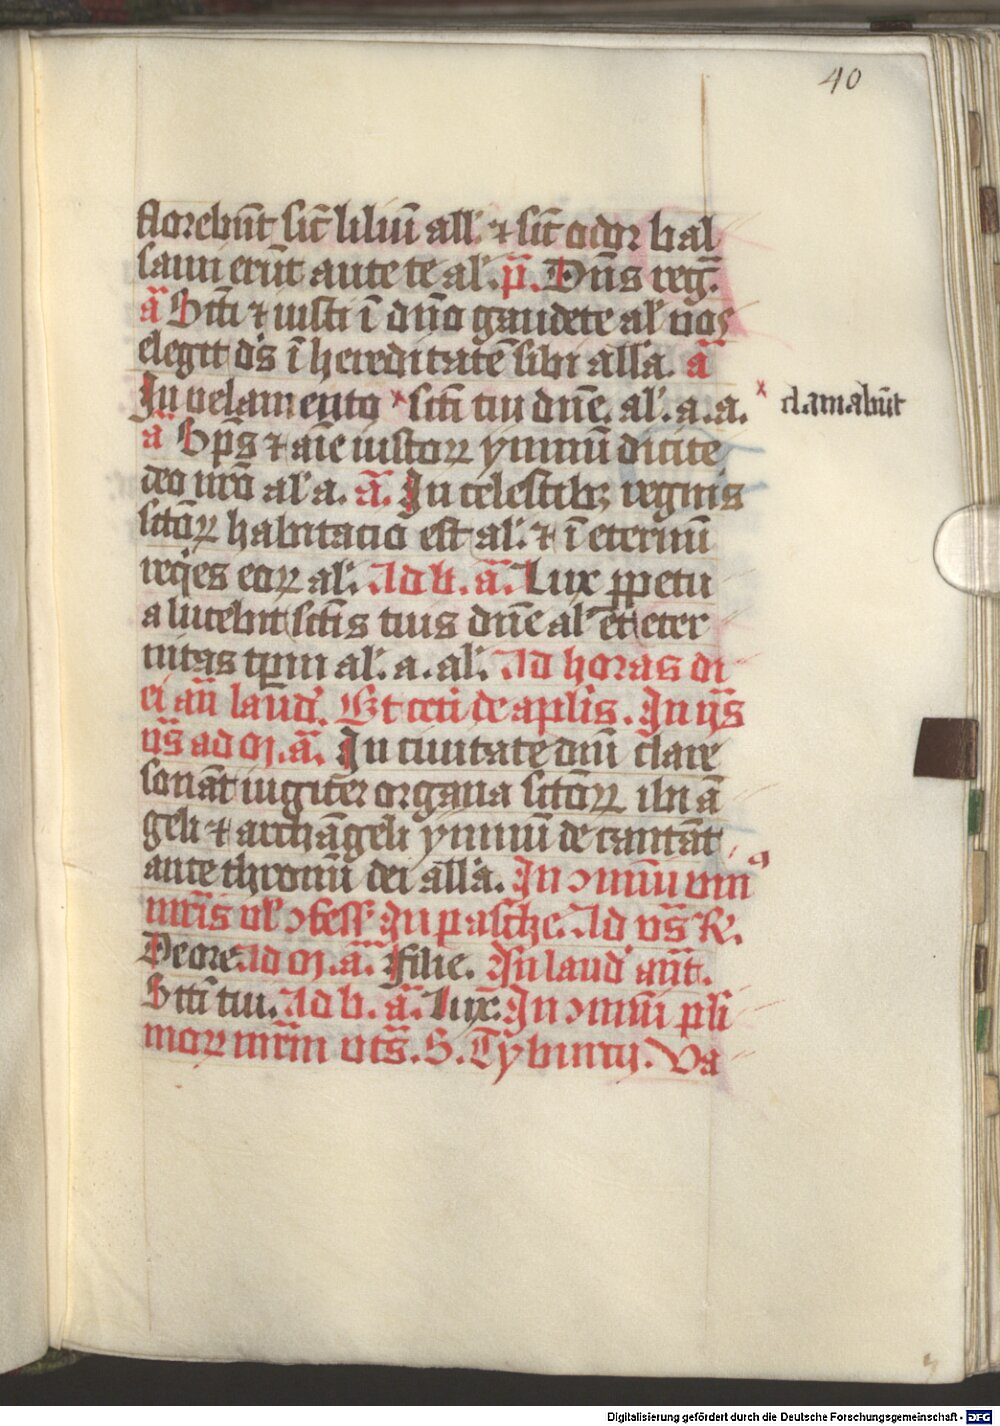 40
florebūt sic̄ liliū all' ⁊ sic̄ odor bal
sami erūt ante te al'. p̄. Dn̄s reḡ.
ā Scti ⁊ iusti ī dn̄o gaudete al' uos
elegit ds̄ ī hereditatē sibi all'a. ā
In uelamento x scti tui dn̄e. al'. a. a.
x clamabūt
ā Sps̄ ⁊ aīe iustoꝝ ymnū dicite
deo nrō al' a. ā. In celestibꝫ regnis
sctōꝝ habitacio est al'. ⁊ ī eternū
reqies eoꝝ al'. Ad b. ā. Lux ꝑpetu
a lucebit sctis tuis dn̄e al' et eter
nitas tꝑm al'. a. al'. Ad horas di
ei an̄ laud'. Et ceti de aplis. In ijs
us̄ ad m. ā. In ciuitate dnī clare
sonāt iugiter organa sctōꝝ ibi ā
geli ⁊ archāgeli ymnū decantāt
ante thronū dei all'a. In ꝯmūi uni⁹
mr̄is ul' ꝯfess' In pasche. Ad us̄ R.
De ore. ad m. ā. Filie. In laud' ant̄.
Scti tui. Ad b. ā. Lux. In ꝯmūi pli
moꝝ mr̄m uts̄. S. Tyburcij. Va
Digitalisierung gefördert durch die Deutsche Forschungsgemeinschaft - DFG